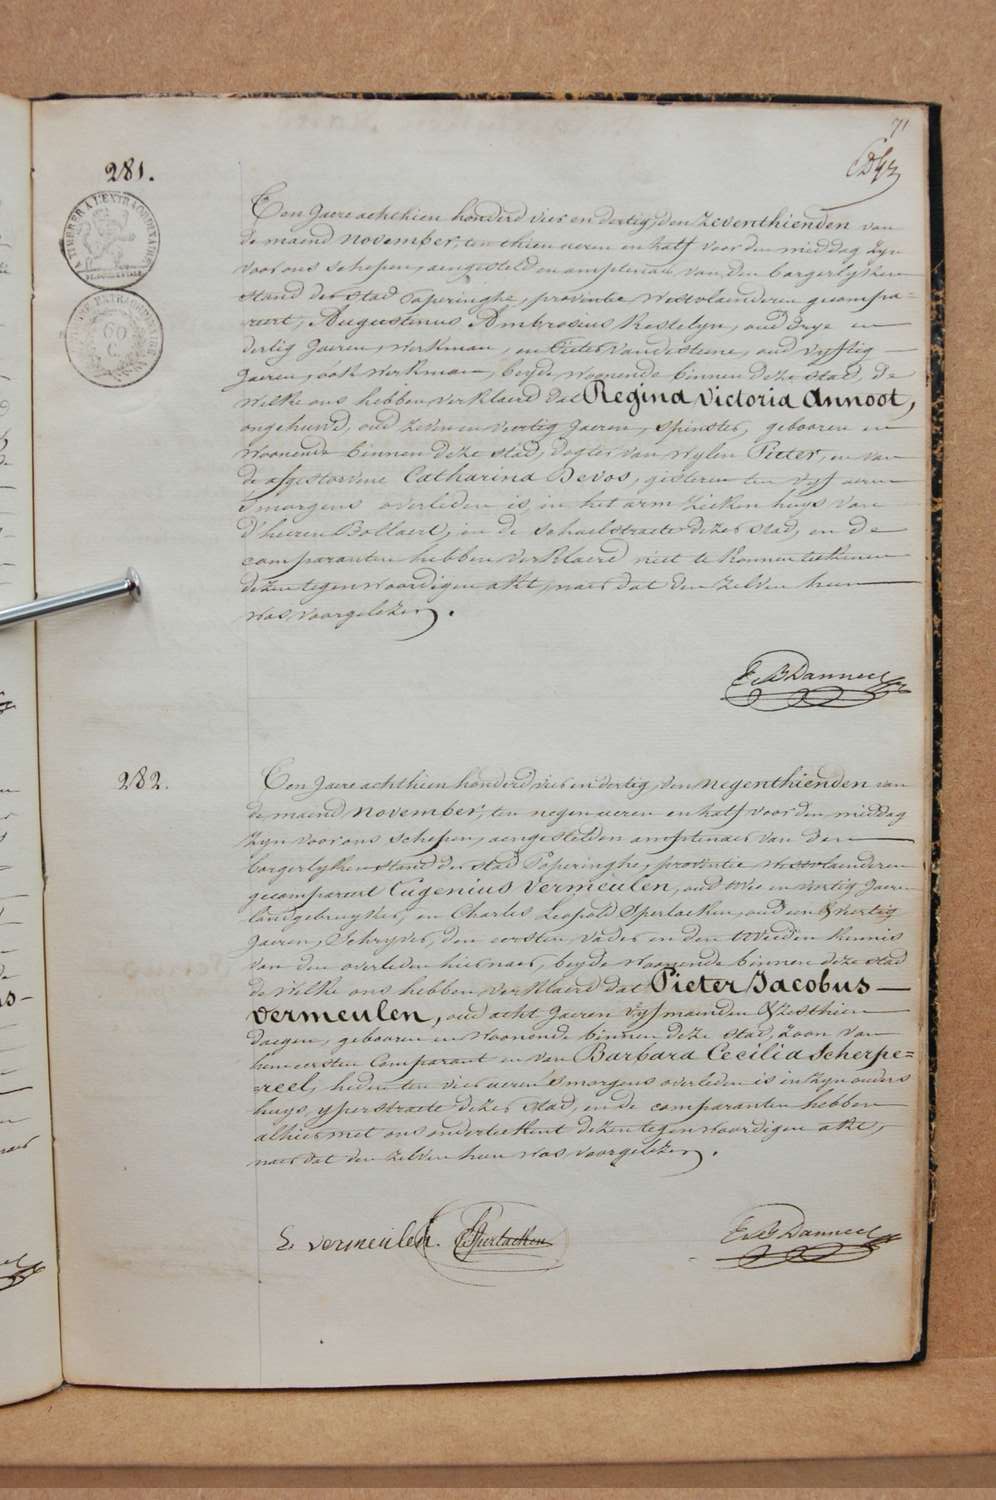 71
281.
TIMBRE A L'EXTRAORDINAIRE
60
C
Ten Jaere achthien honderd vier en dertig, den zeventhienden van
de maend november, ten thien ueren en half voor den middag zyn
voor ons schepen, aengesteld en amptenaer van den borgerlyken
stand der stad Poperinghe, provintie Westvlaenderen gecompa-
reert, Augustinus Ambrosius Kestelyn, oud drye en
dertig Jaeren, werkman, en Pieter Vandesteene, oud vyftig
Jaeren, ook werkman, beyde woonende binnen deze stad, de
welke ons hebben verklaerd dat Regina Victoria Annoot,
ongehuwd, oud zeven en veertig Jaeren, spinster, gebooren en
woonende binnen deze stad, dogter van wylen Pieter, en van
de afgestorvene Catharina Devos, gisteren ten vyf ueren
's morgens overleden is, in het arm zieken huys van
d'heeren Bollaert, in de schoolstraete dezer stad, en de
comparanten hebben verklaerd niet te konnen teekenen
dezen tegenwoordigen akt, naer dat den zelven hun
was voorgelezen.
E. B Danneel
282.
Ten Jaere achthien honderd vier en dertig, den negenthienden van
de maend november, ten negen ueren en half voor den middag
zyn voor ons schepen, aengestelden amptenaer van den
borgerlyken stand der stad Poperinghe, provintie Westvlaenderen
gecompareert Eugenius Vermeulen, oud twee en veertig Jaeren
landgebruyker, en Charles Leopold Sperlaeken, oud een & veertig
Jaeren, schryver, den eersten vader en den tweeden kennis
van den overleden hiernaer, beyde woonende binnen deze stad
de welke ons hebben verklaerd dat Pieter Jacobus
Vermeulen, oud acht Jaeren vyf maenden & zesthien
daegen, gebooren en woonende binnen deze stad, zoon van
hun eersten comparant en van Barbara Cecilia Scherpe-
reel, heden ten vier ueren 's morgens overleden is in zyn ouders
huys, yperstraete dezer stad, en de comparanten hebben
alhier met ons onderteekent dezen tegenwoordigen akt,
naer dat den zelven hun was voorgelezen.
E. vermeulen. Sperlaeken E. B Danneel